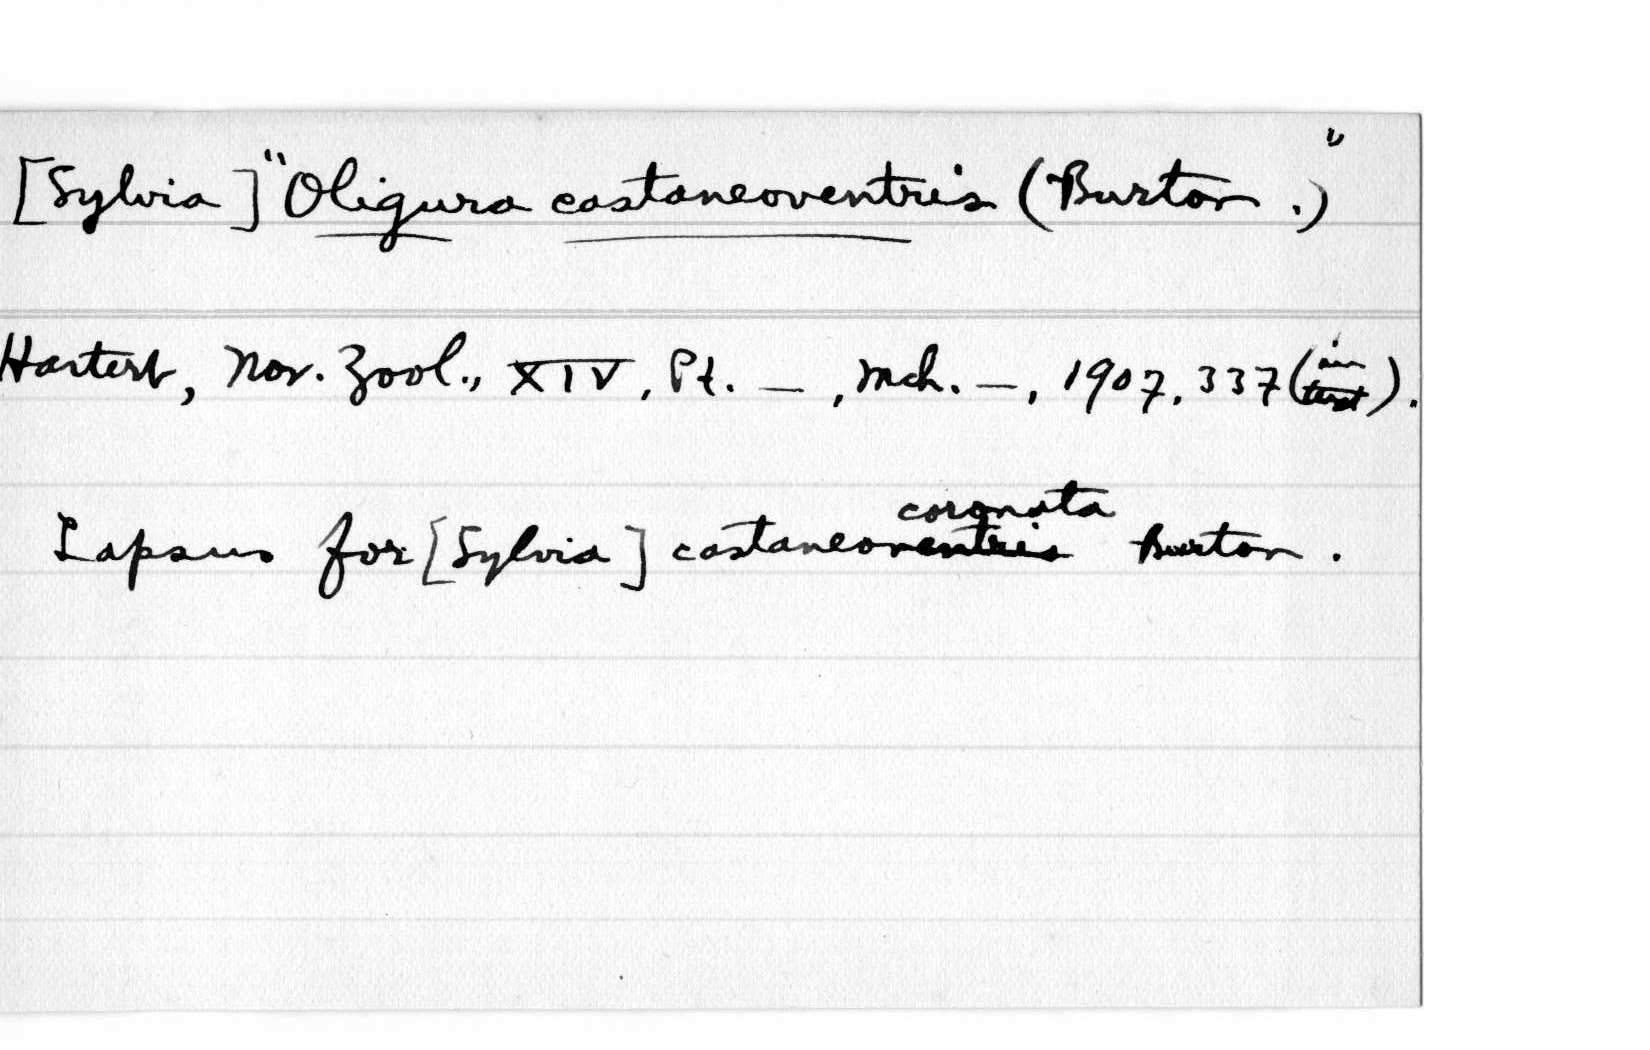 [Sylvia] "Oligura castaneoventris (Burton.)"
Hartert, Nov. Zool., XIV, Pt. —, Mch. —, 1907, 337 (in text).
Lapsus for [Sylvia] castaneoventris coronata Burton.